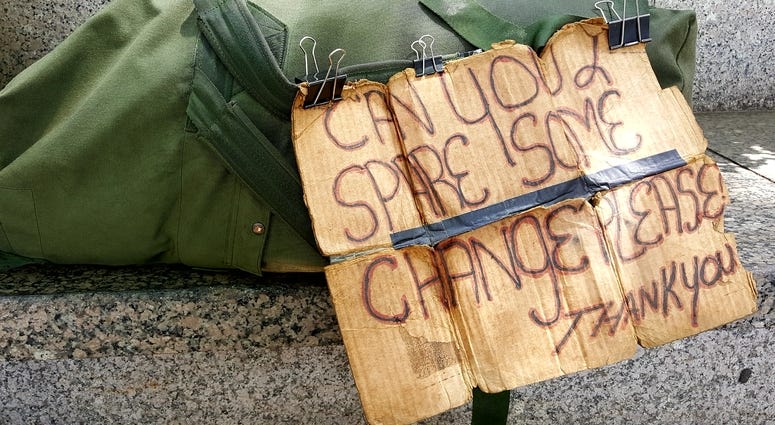 CAN YOU
SPARE SOME
CHANGE PLEASE!
THANK YOU